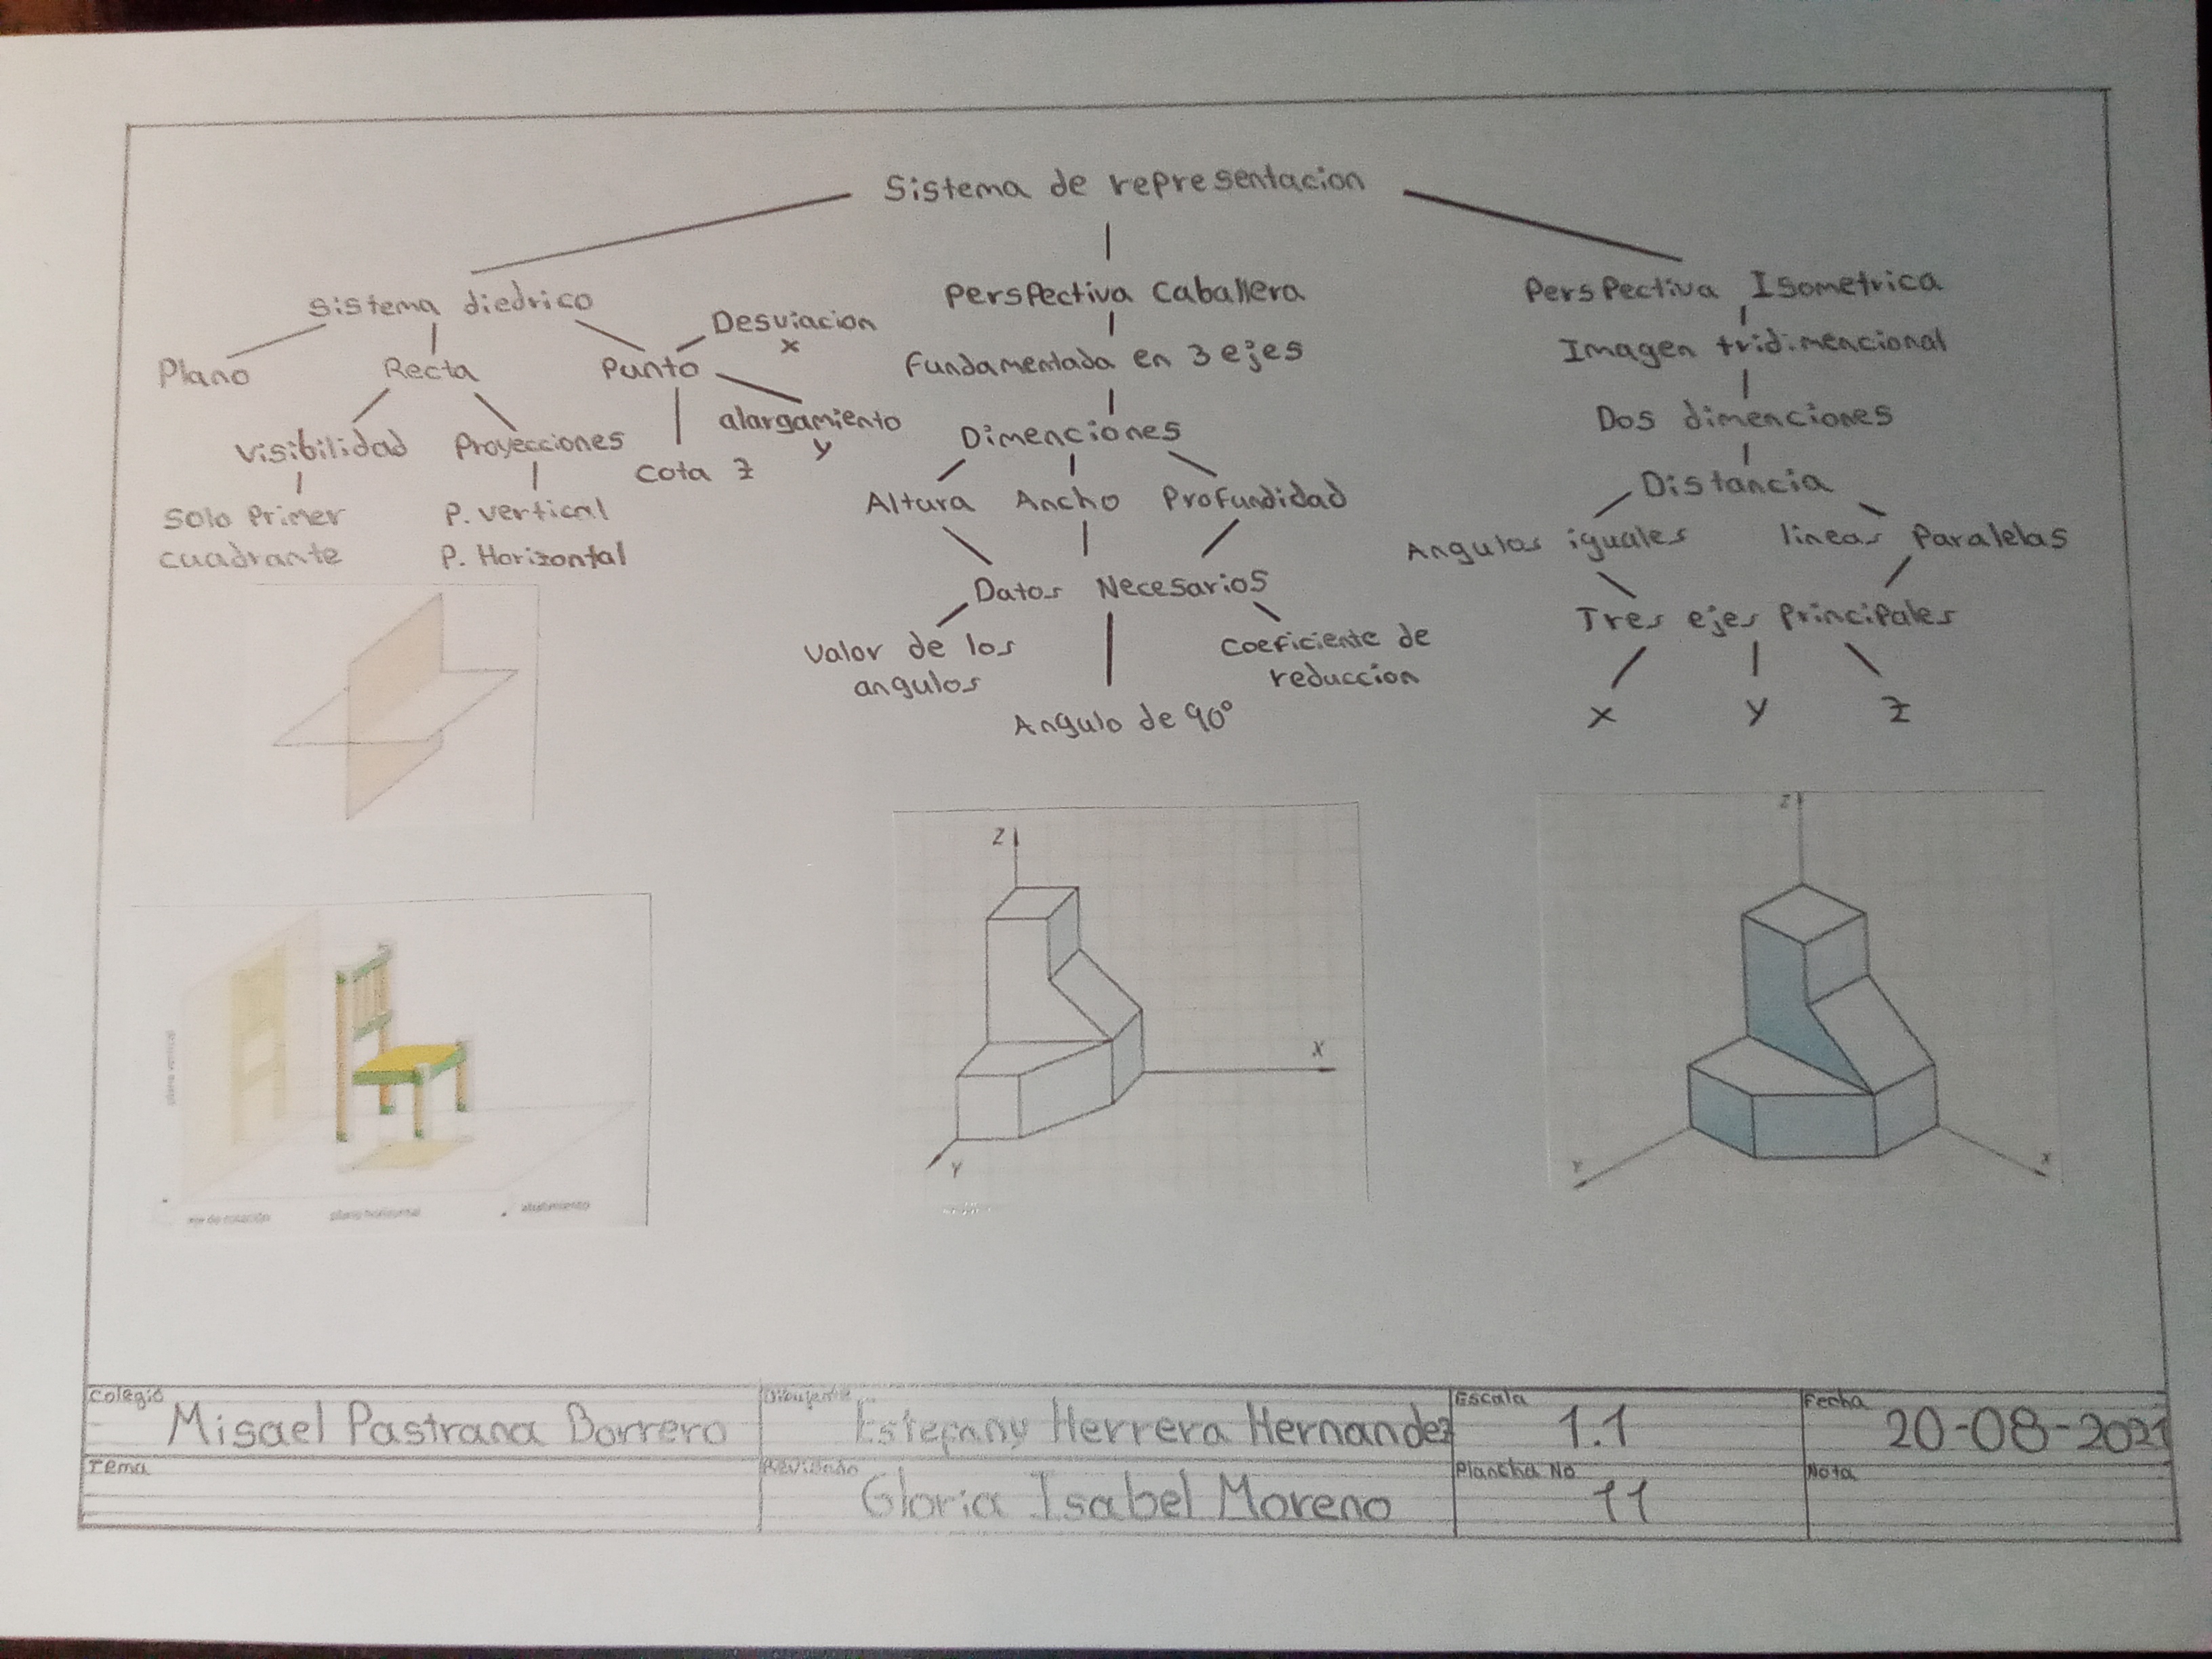 Sistema de representacion
Sistema diedrico
Perspectiva Caballera
Perspectiva Isometrica
Plano
Recta
Punto
Desviacion
x
alargamiento
y
Cota Z
Visibilidad
Proyecciones
Solo Primer
cuadrante
P. vertical
P. Horizontal
Fundamentada en 3 ejes
Dimenciones
Altura
Ancho
Profundidad
Datos Necesarios
Valor de los
angulos
Angulo de 90°
Coeficiente de
reduccion
Imagen tridimencional
Dos dimenciones
Distancia
Angulos iguales
lineas Paralelas
Tres ejes Principales
X
Y
Z
plano vertical
eje de rotación
plano horizontal
abatimiento
Z
X
Y
Z
Y
X
Colegio
Misael Pastrana Borrero
Dibujante
Estefany Herrera Hernandez
Escala
1.1
Fecha
20-08-2021
Tema
Revisado
Gloria Isabel Moreno
Plancha No
11
Nota